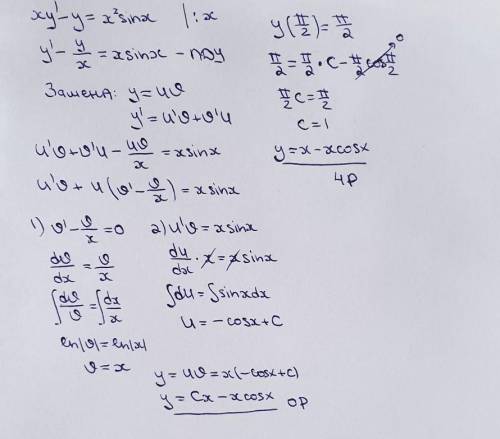 xy' - y = x² sinx | : x
y' - y/x = x sinx - ЛДУ
Замена: y = uϑ
y' = u'ϑ + ϑ'u
u'ϑ + ϑ'u - uϑ/x = x sinx
u'ϑ + u(ϑ' - ϑ/x) = x sinx
1) ϑ' - ϑ/x = 0
dϑ/dx = ϑ/x
∫dϑ/ϑ = ∫dx/x
ln|ϑ| = ln|x|
ϑ = x
2) u'ϑ = x sinx
du/dx · x = x sinx
∫du = ∫sinx dx
u = -cosx + C
y = uϑ = x(-cosx + c)
y = Cx - x cosx ОР
y(π/2) = π/2
π/2 = π/2 · C - π/2 cos π/2 0
π/2 C = π/2
C = 1
y = x - x cosx
ЧР